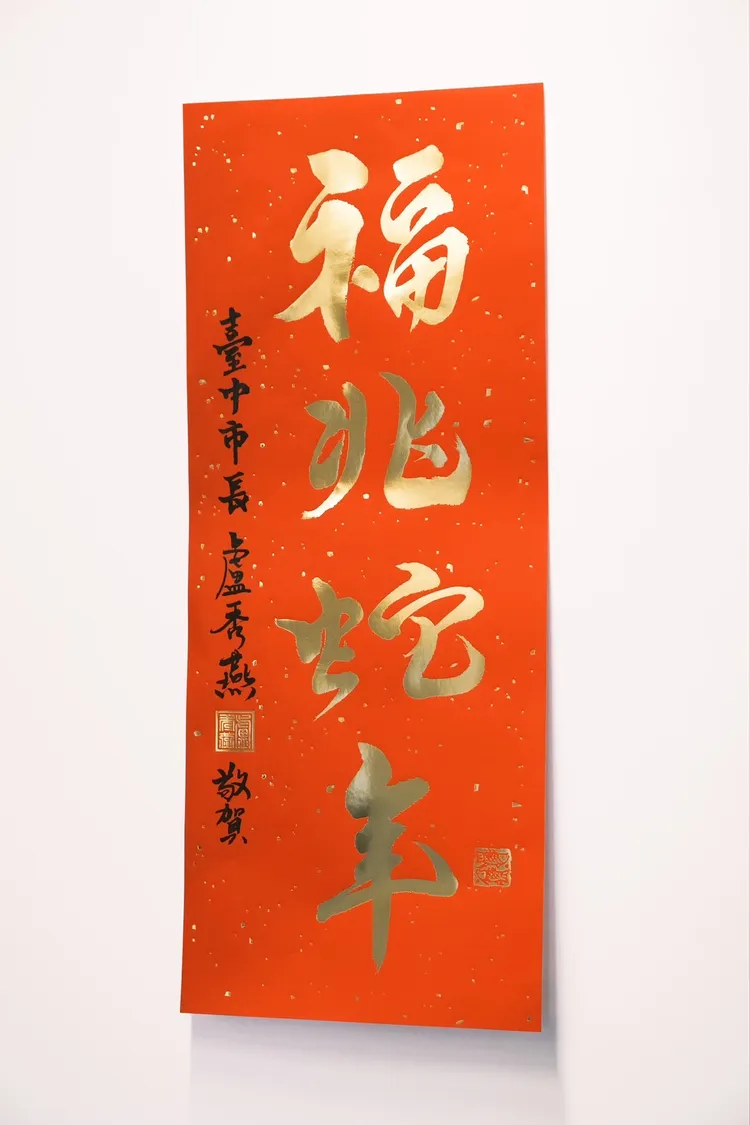 福兆蛇年
臺中市長 盧秀燕
敬賀